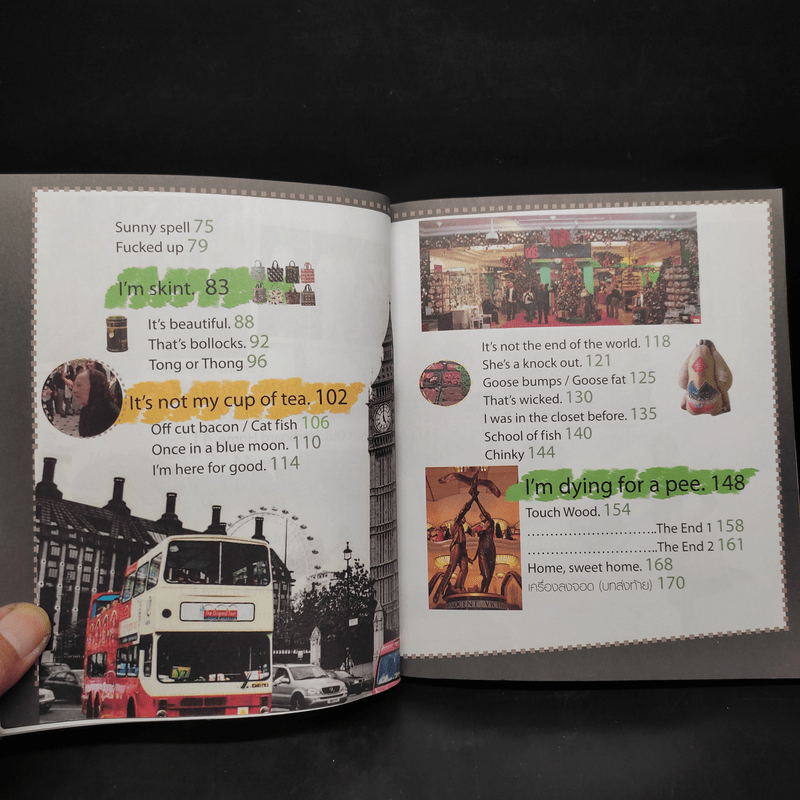 Sunny spell 75
Fucked up 79
I'm skint. 83
It's beautiful. 88
That's bollocks. 92
Tong or Thong 96
It's not my cup of tea. 102
Off cut bacon / Cat fish 106
Once in a blue moon. 110
I'm here for good. 114
It's not the end of the world. 118
She's a knock out. 121
Goose bumps / Goose fat 125
That's wicked. 130
I was in the closet before. 135
School of fish 140
Chinky 144
I'm dying for a pee. 148
Touch Wood. 154
............................The End 1 158
............................The End 2 161
Home, sweet home. 168
เครื่องลงจอด (บทส่งท้าย) 170